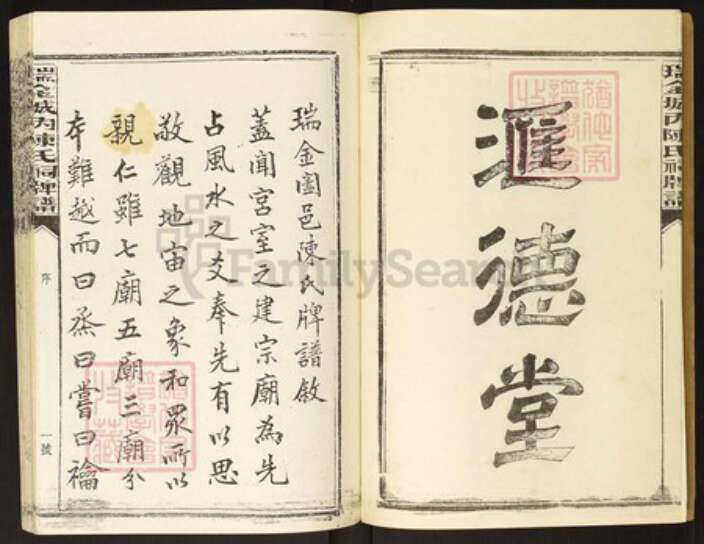 滙德堂
瑞金城内陳氏祠牌譜
瑞金闔邑陳氏牌譜敘
蓋聞宮室之建宗廟為先
占風水之爻奉先有以思
敬觀地宙之象和眾所以
親仁雖七廟五廟三廟分
本難越而曰烝曰嘗曰禴
瑞金城内陳氏祠牌譜
序
一號
FamilySearch